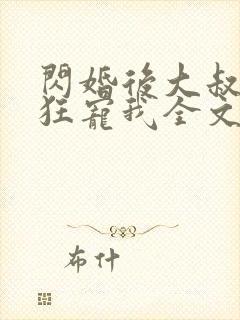 閃婚後大叔
狂寵我全文
布什